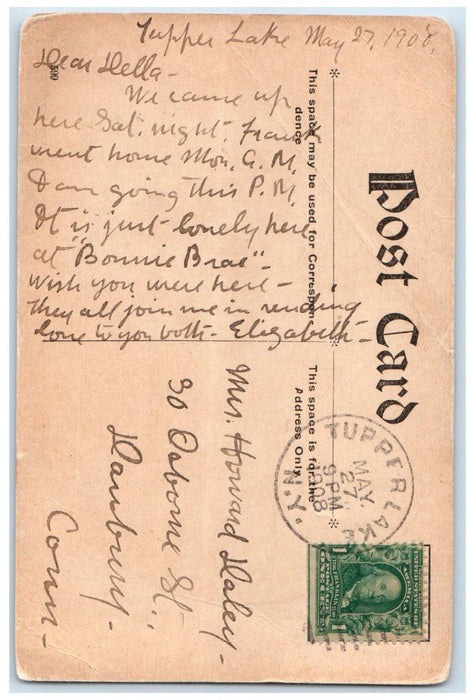 Tupper Lake May 27, 1908.
Dear Della -
We came up
here Sat. night. Frank
went home Mon. A.M.
I am going this P.M.
It is just lovely here
at "Bonnie Brae" -
Wish you were here -
They all join me in sending
love to you both - Elizabeth -
609
This space may be used for Correspon-
dence
Post Card
This space is for the
Address Only
Mrs. Howard Daley -
30 Osborne St.,
Danbury -
Conn -
TUPPER LAKE
MAY
27
9 PM
1908
N.Y.
1 1
ONE CENT
UNITED STATES
OF AMERICA